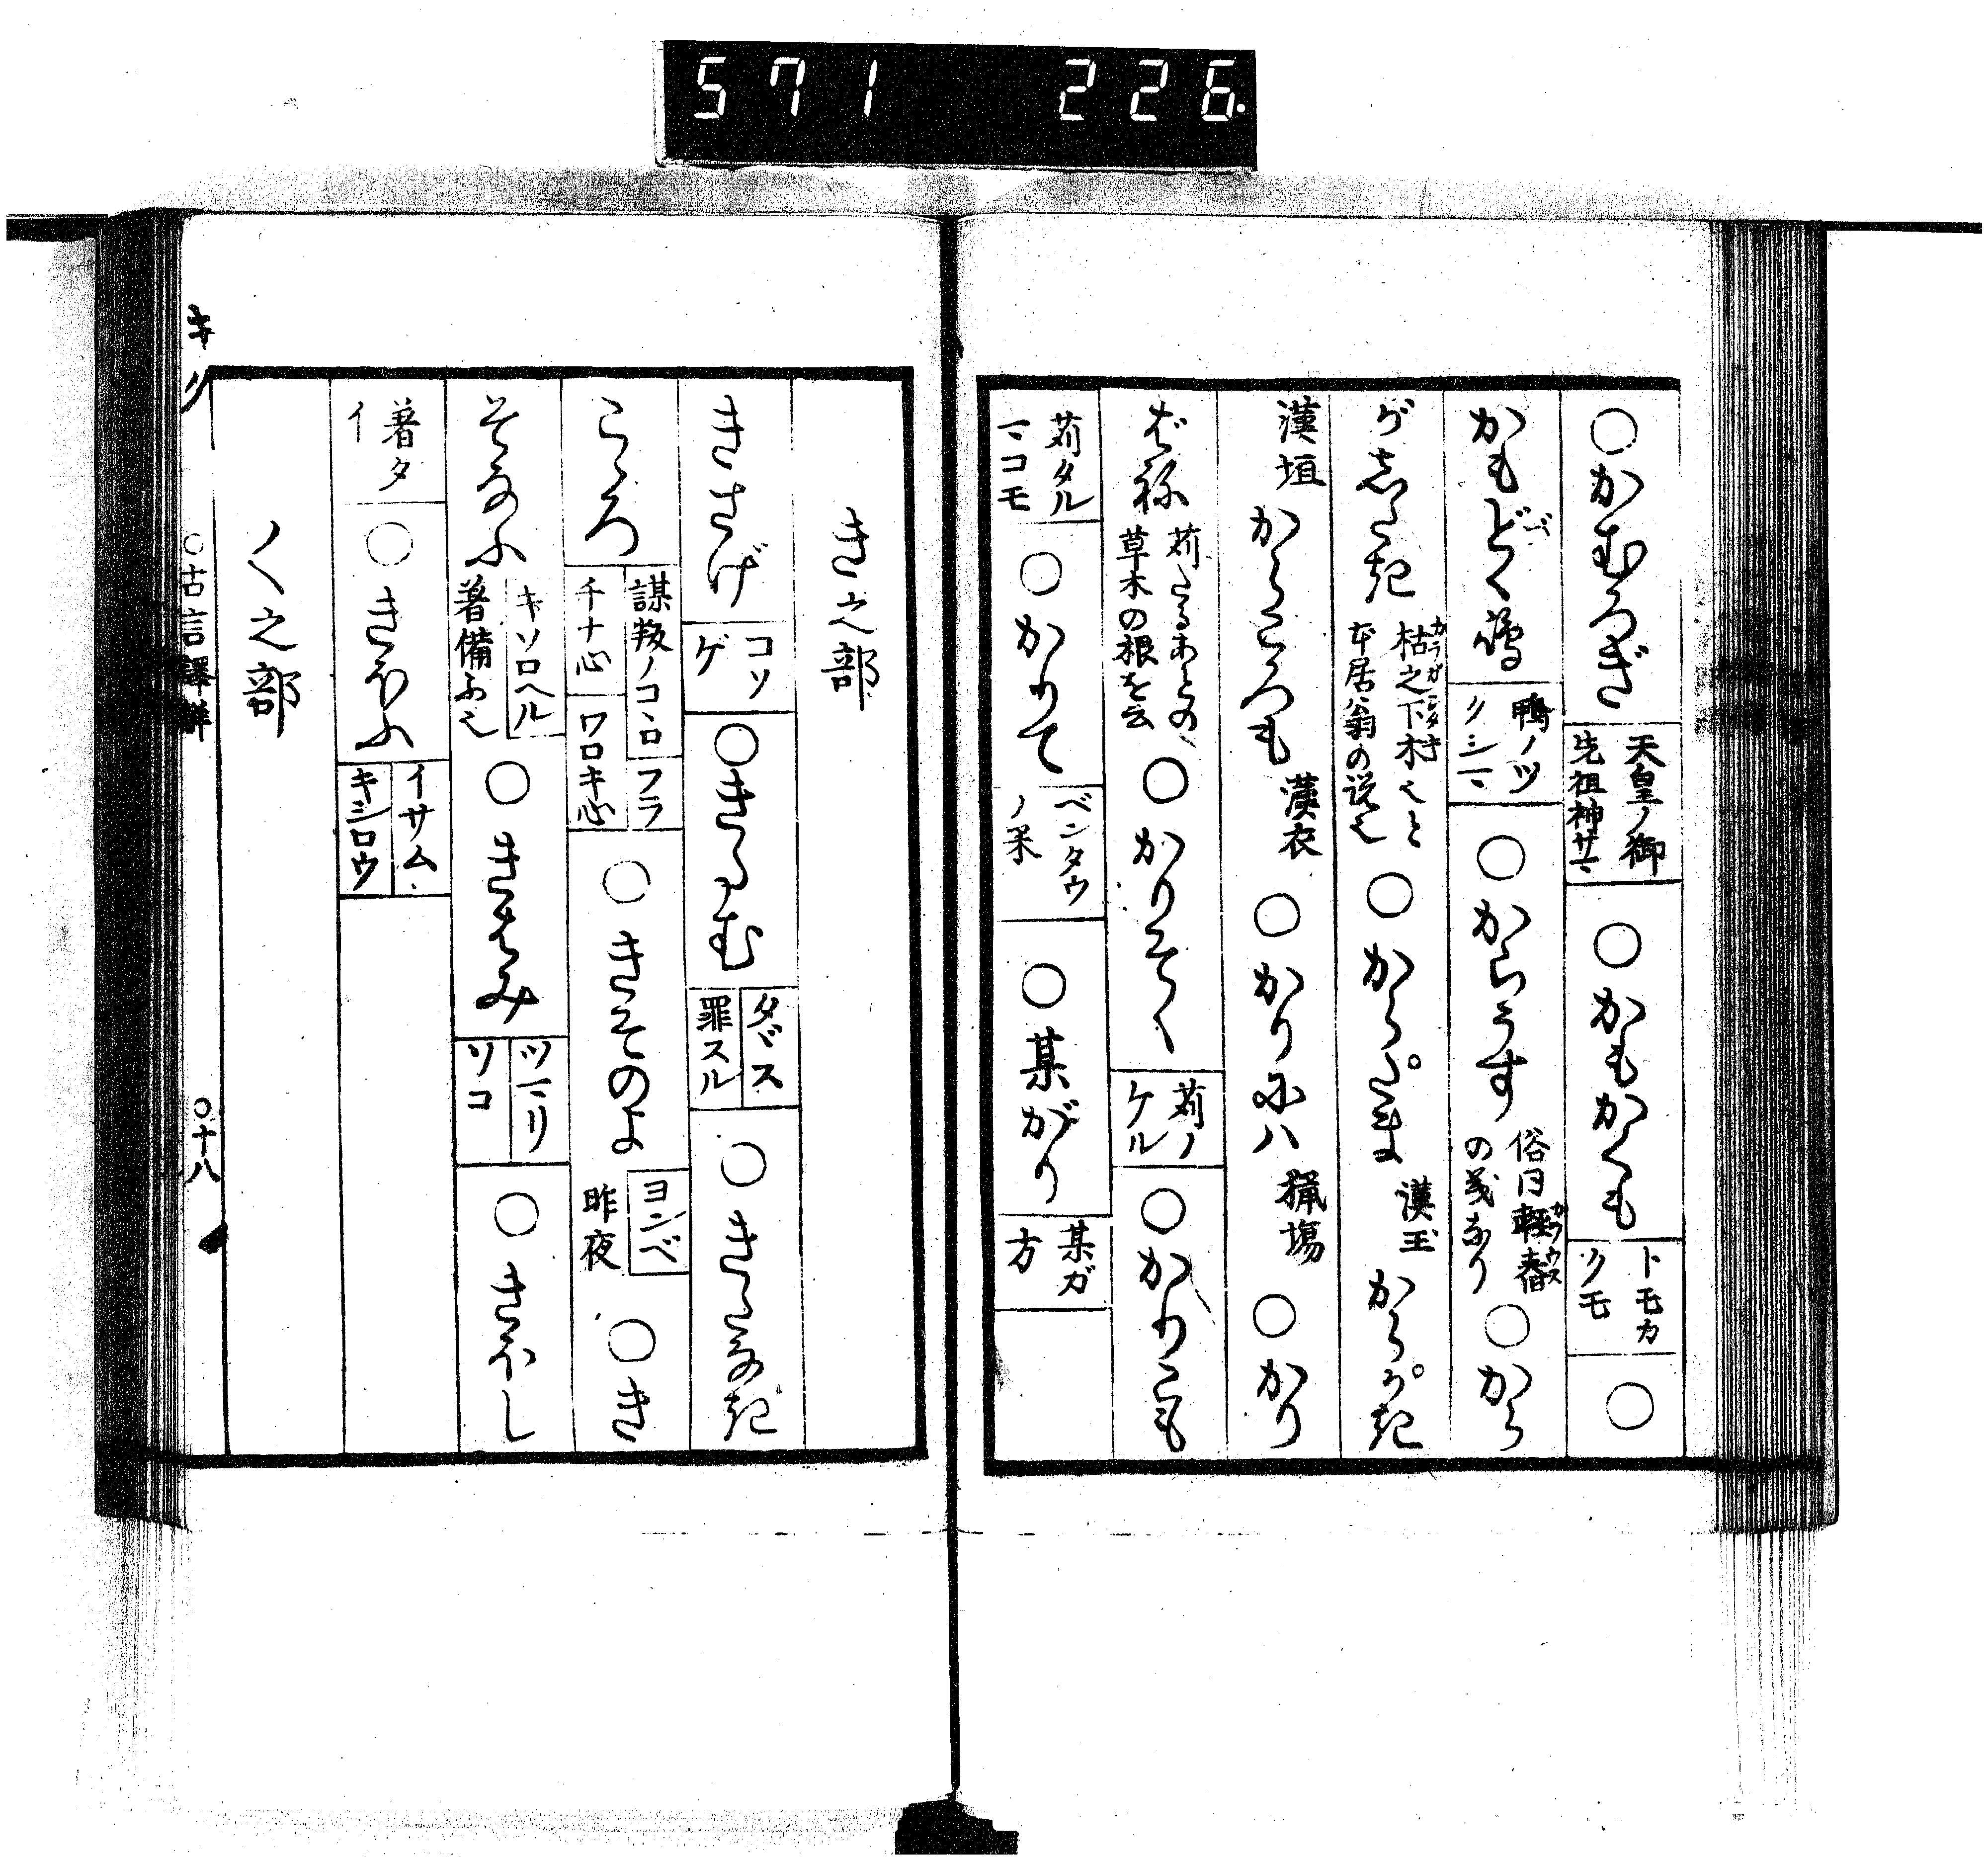 571 226.
○かむろぎ 天皇ノ御先祖神サマ ○かもかくも トモカクモ ○
かもどく島 鴨ノツクシマ ○からうす 俗曰軽舂カラウスの義なり ○から
がしたき 枯之下木カラガシタキ也と本居翁の説也 ○からたま 漢玉 からかき
漢垣 からころも 漢衣 ○かりには 猟場 ○かり
ばね 苅たるあとの草木の根を云 ○かりそく 苅ノケル ○かりこも
苅タルマコモ ○かりて ベンタウノ米 ○某がり 某ガ方
き之部
きさげ コソゲ ○きたむ タヾス 罪スル ○きたなき
こゝろ 謀叛ノコヽロ フラチナ心 ワロキ心 ○きそのよ ヨンベ 昨夜 ○き
そなふ キソロヘル 著備ふ也 ○きはみ ツマリ ソコ ○きほし
著タイ ○きほふ イサム キシロウ
く之部
キク
○古言譯解
○十八